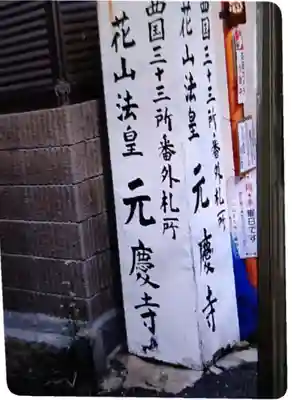 西国三十三所番外札所
花山法皇 元慶寺
西国三十三所番外札所
花山法皇 元慶寺
曜日です